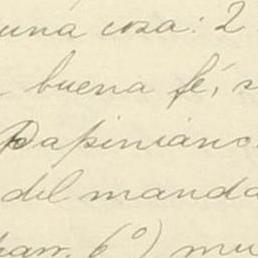 una cosa: 2
buena fé, s
Papiniano
del manda
parr. 6º) mu